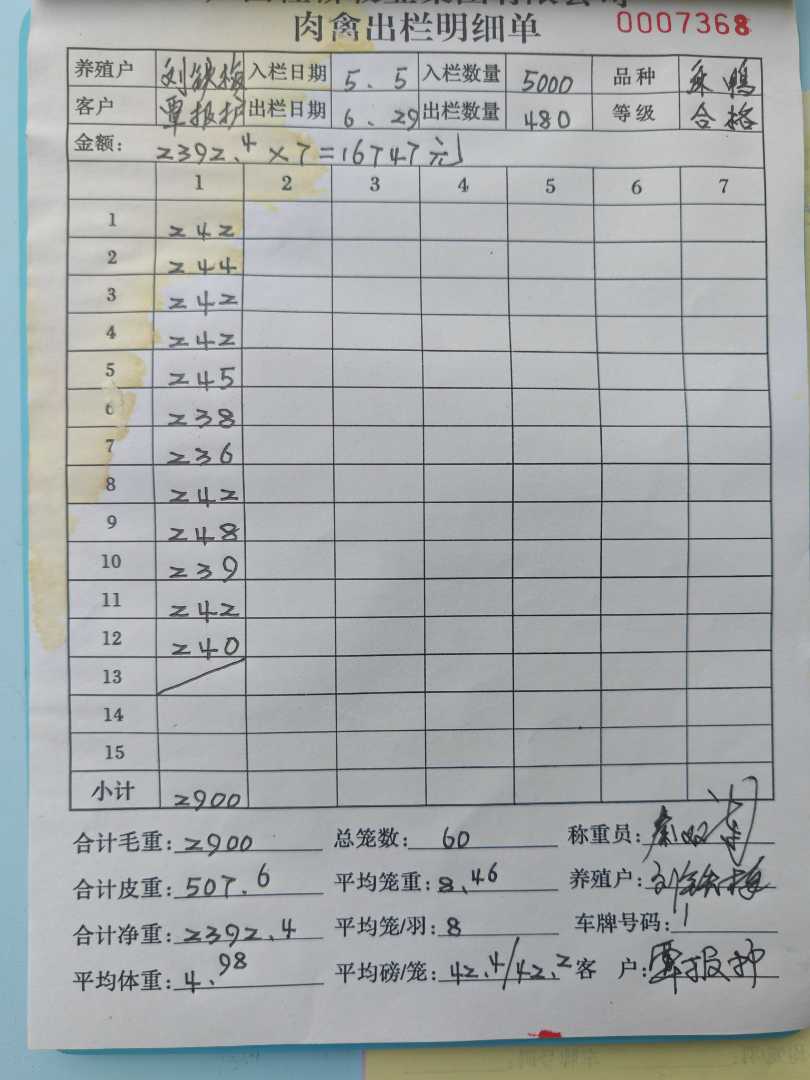 肉禽出栏明细单 0007368
养殖户 刘铁梅 入栏日期 5.5 入栏数量 5000 品种
客户 覃报护 出栏日期 6.29 出栏数量 480 等级 合格
金额: 2392.4×7=16747元
1 2 3 4 5 6 7
1 242
2 244
3 242
4 242
5 245
6 238
7 236
8 242
9 248
10 239
11 242
12 240
13
14
15
小计 2900
合计毛重: 2900 总笼数: 60 称重员:
合计皮重: 507.6 平均笼重: 8.46 养殖户: 刘铁梅
合计净重: 2392.4 平均笼/羽: 8 车牌号码:
平均体重: 4.98 平均磅/笼: 42.4/42.2 客 户: 覃报护